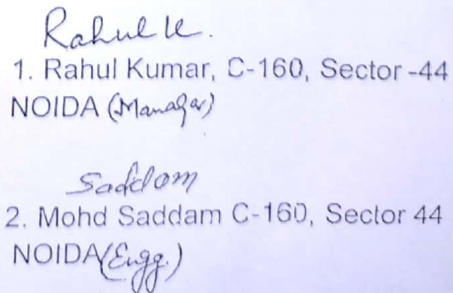 Rahul K.
1. Rahul Kumar, C-160, Sector -44
NOIDA (Manager)
Saddam
2. Mohd Saddam C-160, Sector 44
NOIDA (Engg.)